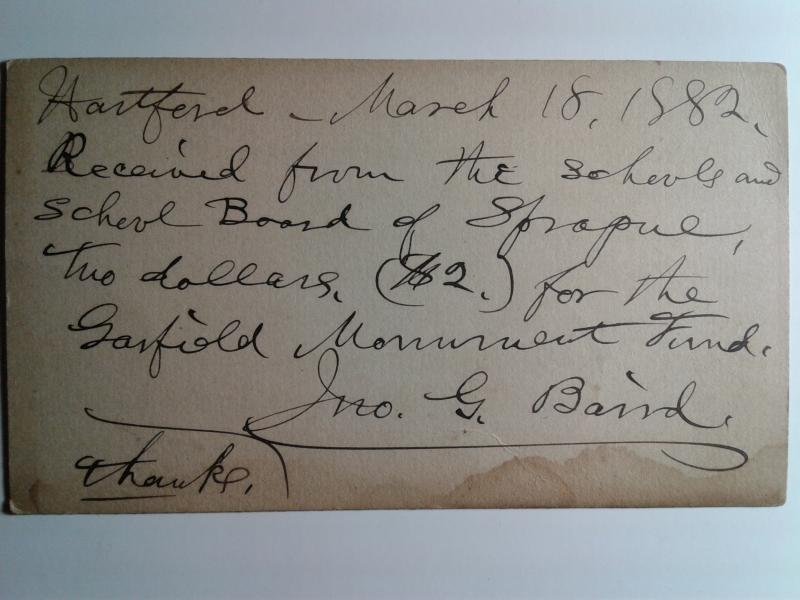 Hartford - March 18, 1882.
Received from the schools and
school Board of Sprague,
two dollars, ($2.) for the
Garfield Monument Fund.
Jno. G. Baird.
thanks.